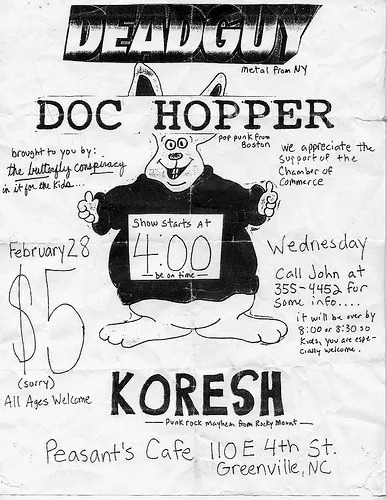 DEADGUY
metal from NY
DOC HOPPER
pop punk from
Boston
brought to you by:
the butterfly conspiracy
in it for the kids...
we appreciate the
support of the
Chamber of
Commerce
Show starts At
4:00
be on time
February 28
$5
(sorry)
All Ages Welcome
Wednesday
Call John at
355-4452 for
some info....
it will be over by
8:00 or 8:30 so
kids, you are espe-
cially welcome.
KORESH
Punk rock mayhem from Rocky Mount
Peasant's Cafe 110 E 4th St.
Greenville, NC